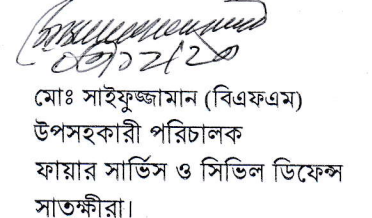 মোঃ সাইফুজ্জামান (বিএফএম)
উপসহকারী পরিচালক
ফায়ার সার্ভিস ও সিভিল ডিফেন্স
সাতক্ষীরা।